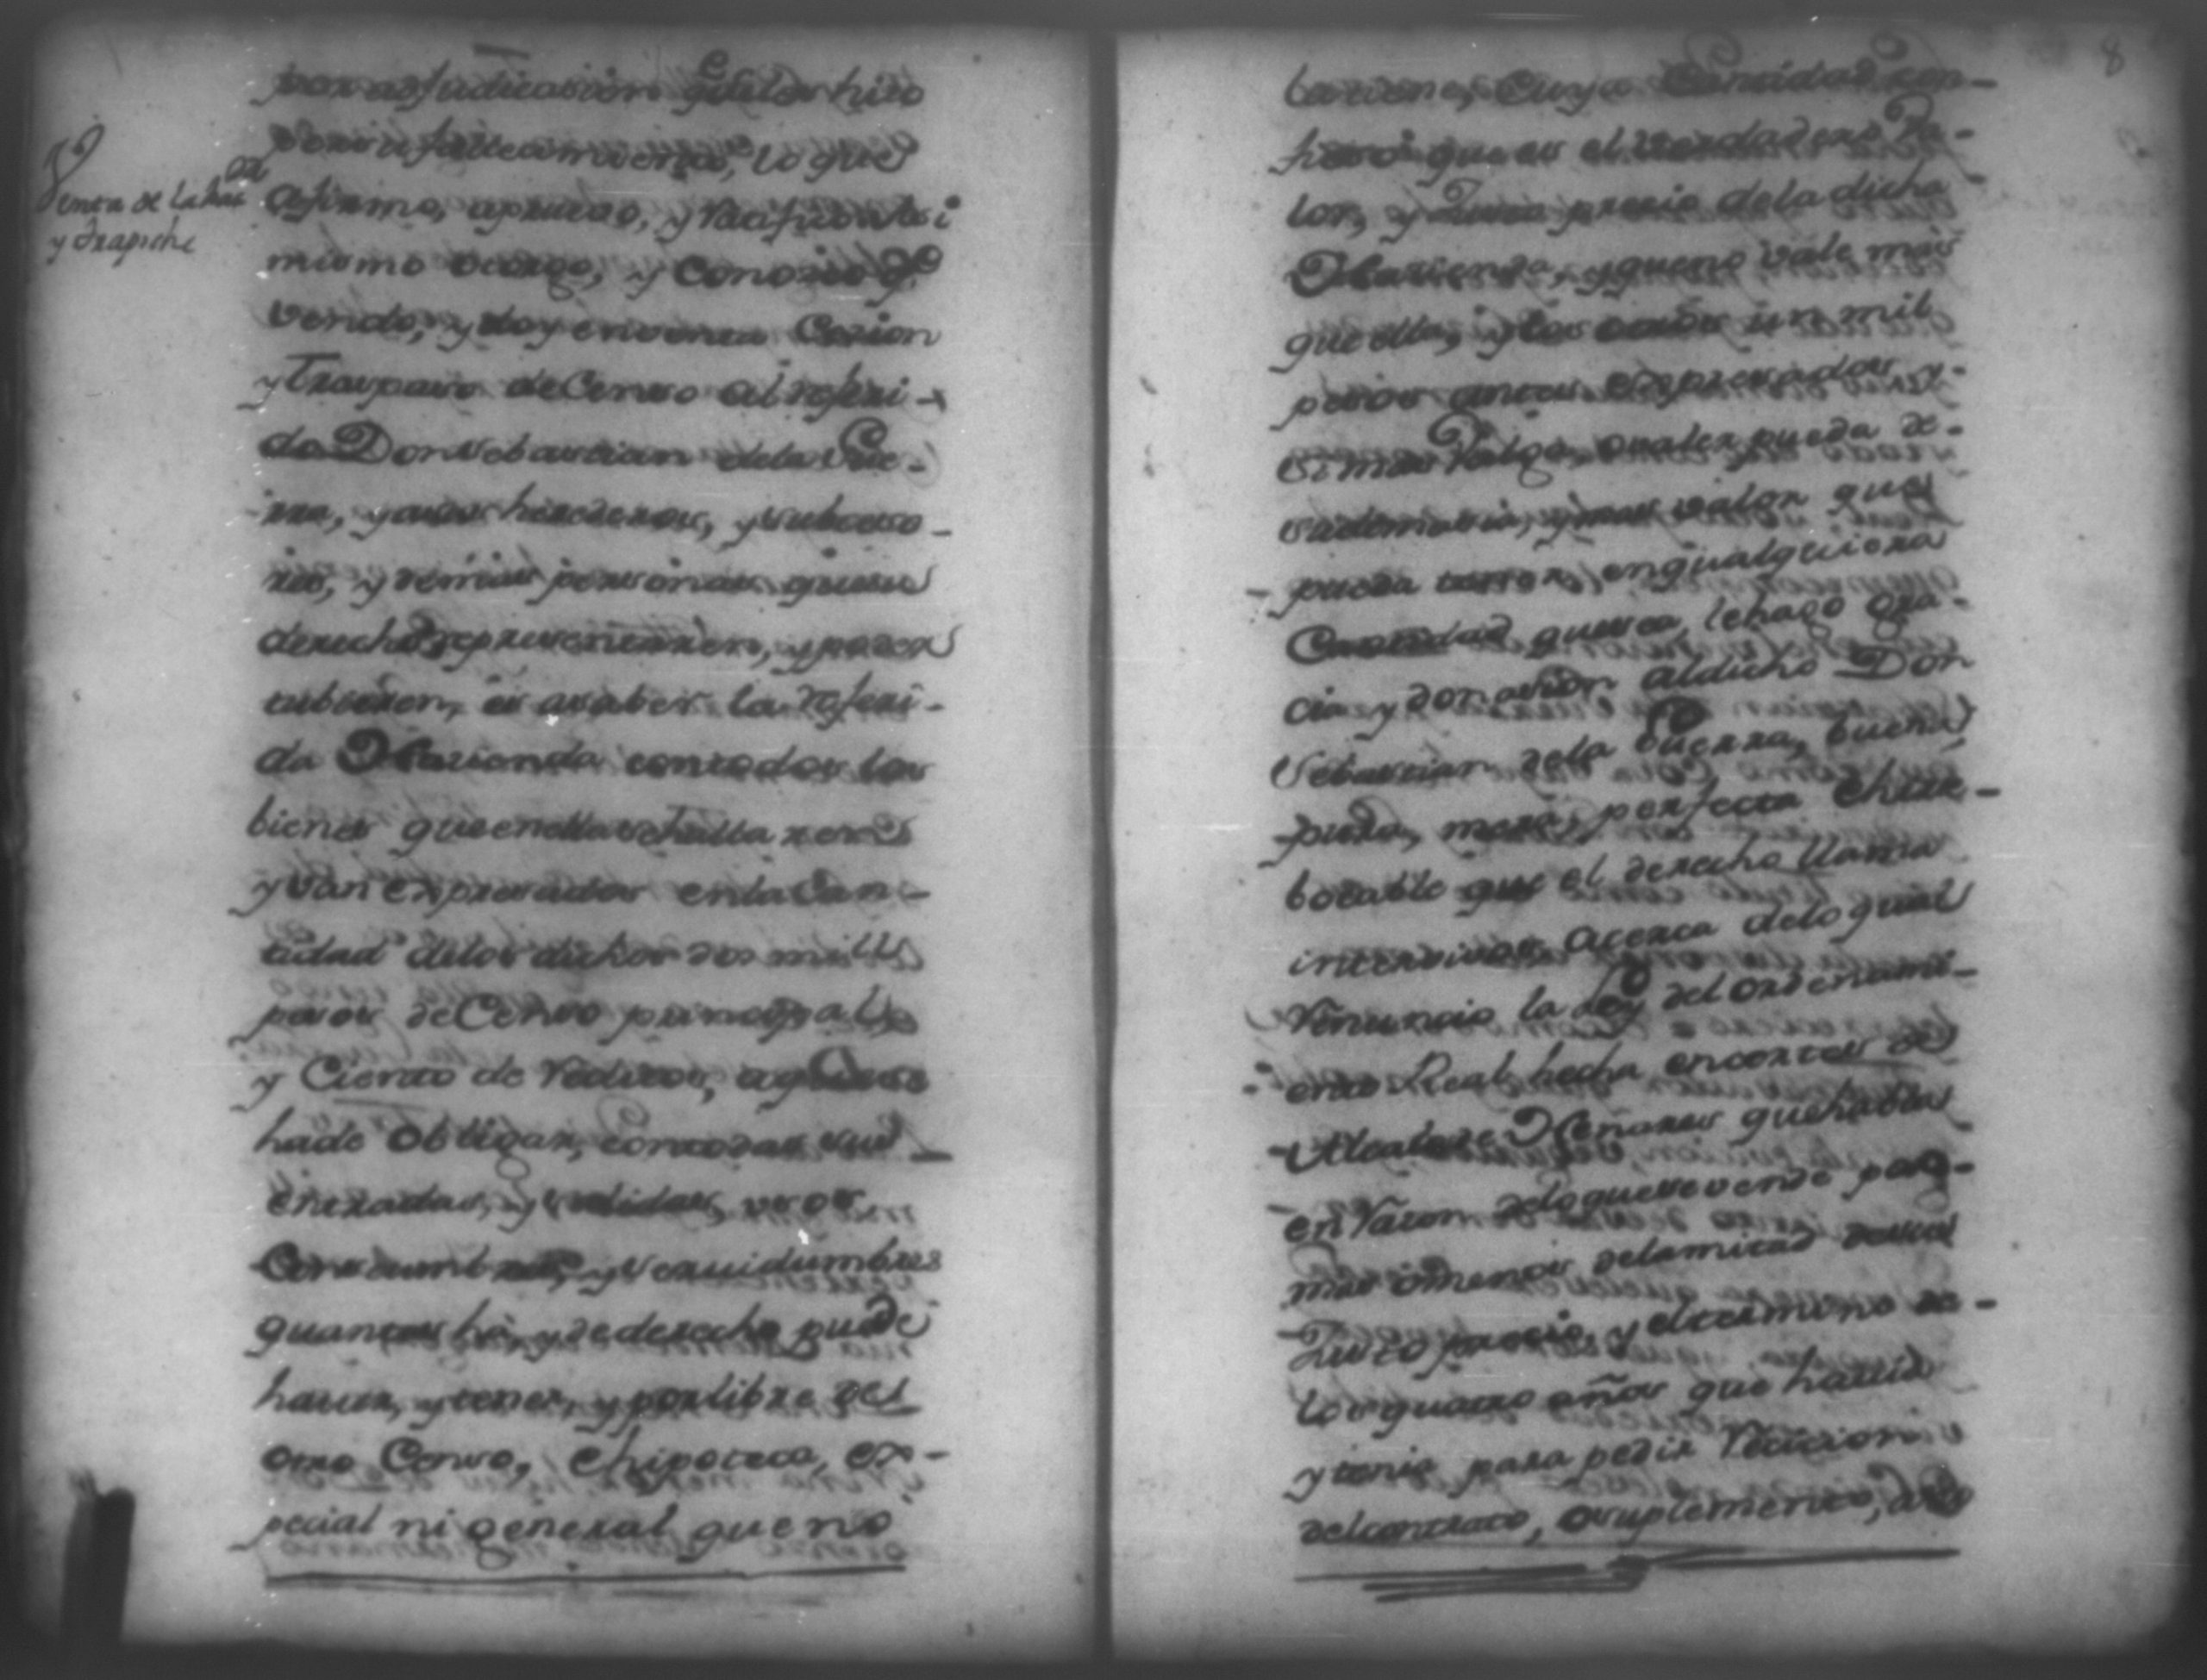 Venta de la haz.da
y trapiche
por adjudicacion q.e se les hizo
afirmo, apruebo, y ratifico Asi
mismo otorgo, y Conozco q.e
vendo, y doy en venta Cesion
y Traspaso de Censo al referi-
do Don Sebastian dela Gue-
rra, y a sus herederos, y subceso-
res, y demas personas que su
derecho representaren, y poder
tubieren, es a saber la referi-
da Hazienda con todos los
bienes que en ella se hallaren
y van expresados en la Can-
tidad delos dichos dos mill
pesos de Censo principal
y Ciento de reditos, a que se
ha de obligar, con todas sus
entradas, y salidas, usos,
Costumbres, y servidumbres
quantas ha, y de derecho puede
hauer, y tener, y por libre de
otro Censo, e hipoteca, es-
pecial ni general que no
8
la tiene, Cuya Cantidad con-
fieso que es el verdadero Va-
lor, y Justo precio dela dicha
Hazienda, y que no vale mas
que ella, y los dichos un mil
pesos antes expresados y
si mas Valga, o valer pueda de
su demasia, y mas valor que
pueda tener, en qualquiera
Cantidad que sea, le hago gra-
cia y donacion al dicho Don
Sebastian dela Guerra, buena
pura, mera, perfecta e hirre-
bocable que el derecho llama
intervivos, Acerca delo qual
renuncio la Ley del ordenami-
ento Real hecha en cortes de
Alcala de Henares que habla
en razon delo que se vende por
mas o menos dela mitad de su
Justo precio, y el termino de
los quatro años que hauia
y tenia para pedir recicion
del contrato, o suplemento,